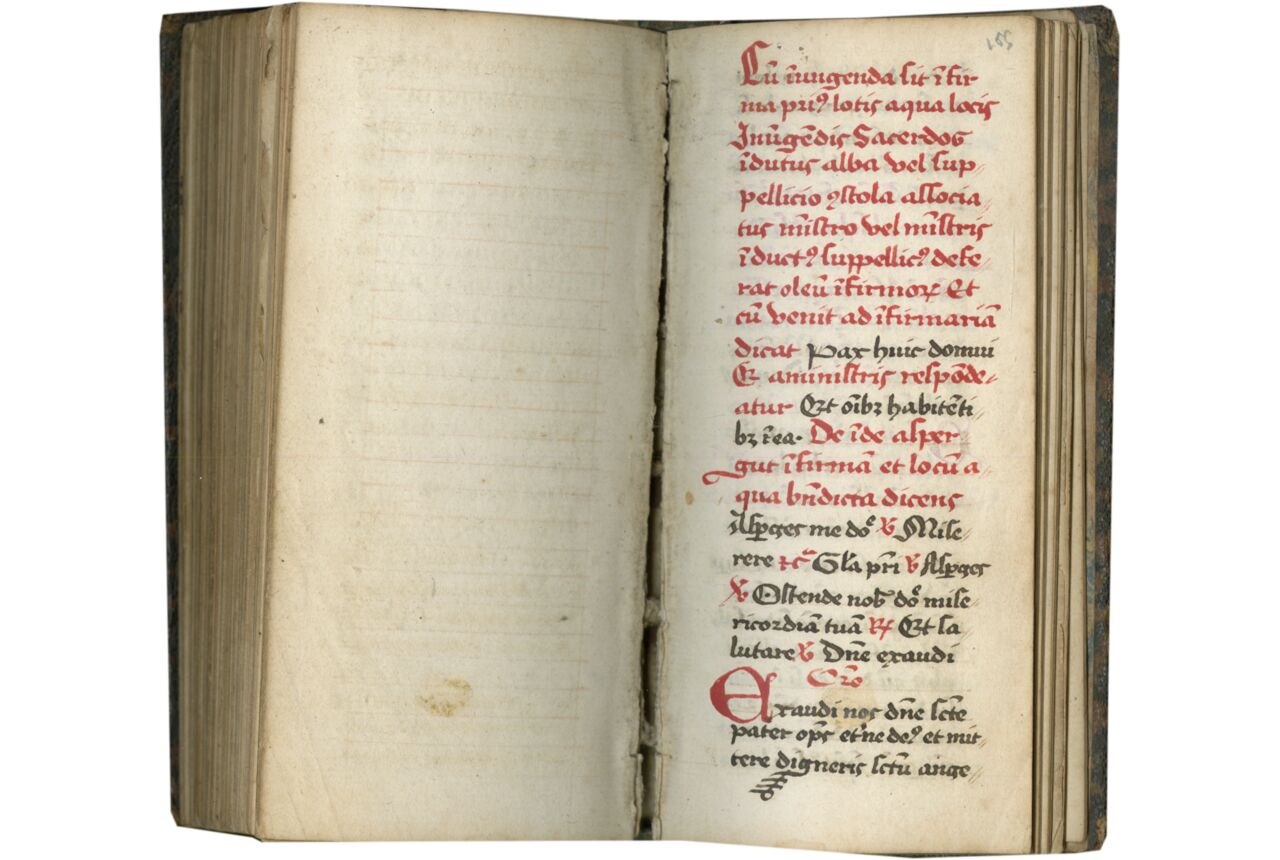 Cū īnungenda sit īfir
ma priꝰ lotis aqua locis
Inūgēdis Sacerdos
īdutus alba vel sup
pellicio ꝯstola associa
tus mīstro vel mīstris
īductꝰ suppellicꝰ defe
rat oleū īfirmoꝝ Et
cū venit ad īfirmariā
dicat Pax huic domui
Et aministris respōde
atur Et oībꝫ habitēti
bꝫ īea. De īde asper
gat īfirmā et locū a
qua bn̄dicta dicens
Asꝑges me do ℣ Mise
rere ⁊c̄ Gl̄a pr̄i ℣ Asꝑges
℣ Ostende nob̄ do mise
ricordiā tuā ℟ Et sa
lutare ℣ Dn̄e exaudi
Oro
Exaudi nos dn̄e sct̄e
pater op̄s et'ne deꝰ et mit
tere digneris sct̄ū ange